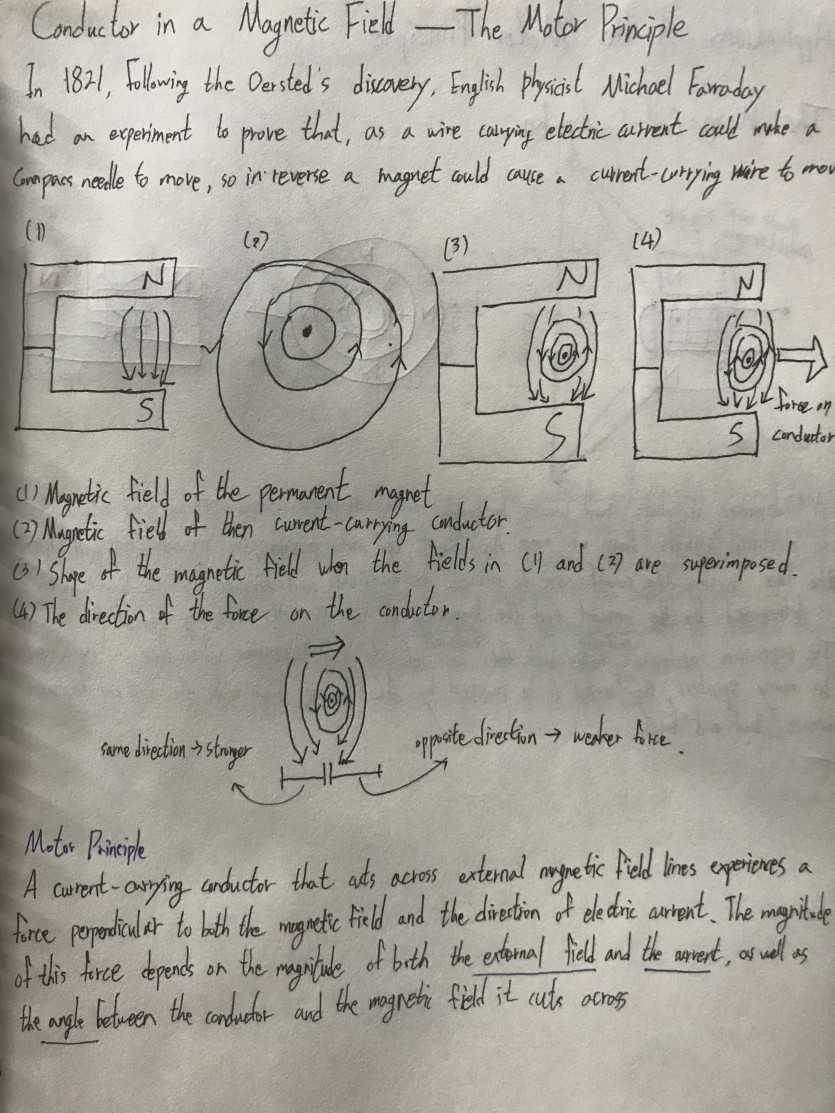 Conductor in a Magnetic Field — The Motor Principle
In 1821, Following the Oersted's discovery, English physicist Michael Farraday
had an experiment to prove that, as a wire carrying electric current could make a
Compass needle to move, so in reverse a magnet could cause a current-carrying wire to mov
(1) (2) (3) (4)
N N N
S S S
force on
conductor
(1) Magnetic field of the permanent magnet
(2) Magnetic field of then current-carrying conductor.
(3) Shape of the magnetic field when the fields in (1) and (2) are superimposed.
(4) The direction of the force on the conductor.
same direction → stronger opposite direction → weaker force.
Motor Principle
A current-carrying conductor that cuts across external magnetic field lines experiences a
force perpendicular to both the magnetic field and the direction of electric current. The magnitude
of this force depends on the magnitude of both the external field and the current, as well as
the angle between the conductor and the magnetic field it cuts across